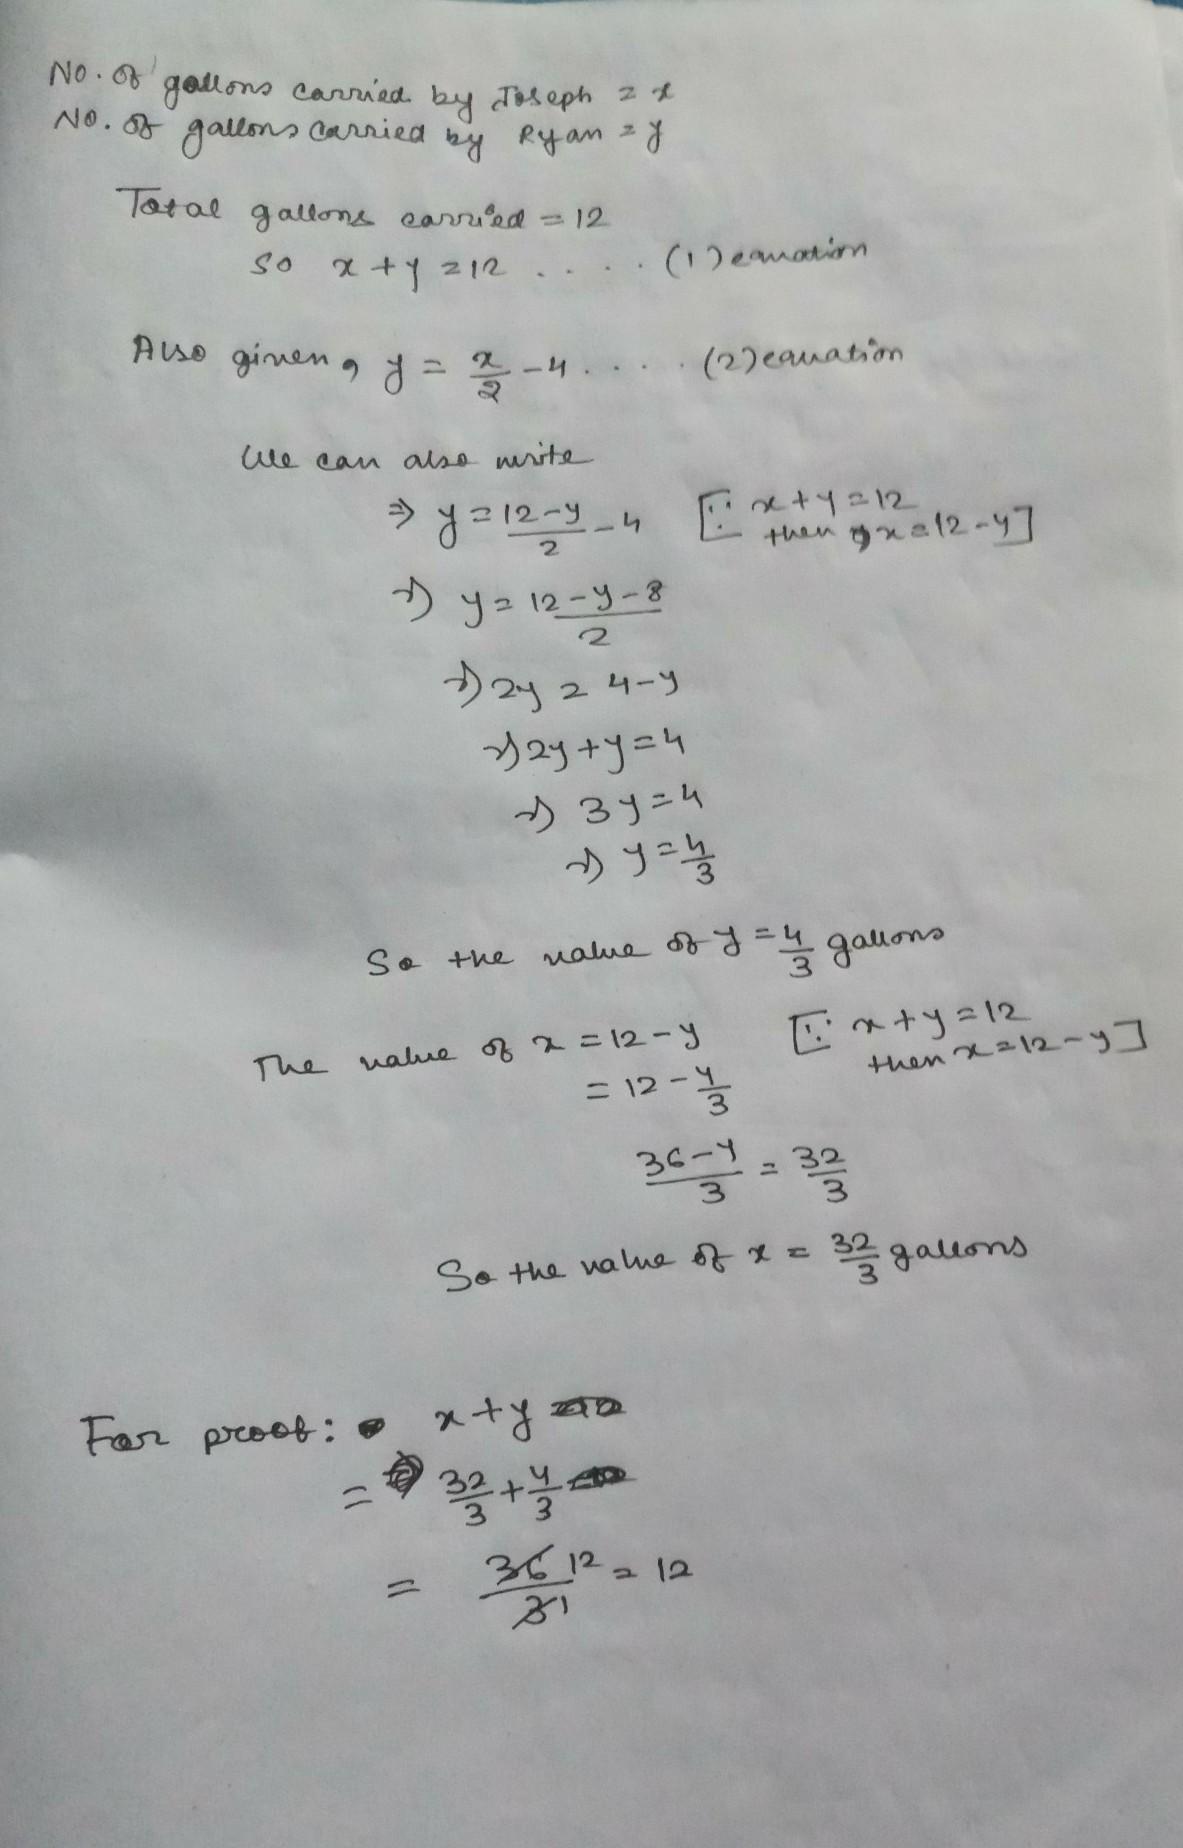 No. of gallons carried by Joseph = x
No. of gallons carried by Ryan = y
Total gallons carried = 12
So x + y = 12 . . . . (1) equation
Also given, y = x/2 - 4 . . . . . (2) equation
We can also write
⇒ y = (12-y)/2 - 4 [∵ x + y = 12
then x = 12 - y]
⇒ y = (12-y-8)/2
⇒ 2y = 4-y
⇒ 2y + y = 4
⇒ 3y = 4
⇒ y = 4/3
So the value of y = 4/3 gallons
The value of x = 12 - y [∵ x + y = 12
then x = 12 - y]
= 12 - 4/3
(36-4)/3 = 32/3
So the value of x = 32/3 gallons
For proof: x + y
= 32/3 + 4/3
= 36/3 12/1 = 12